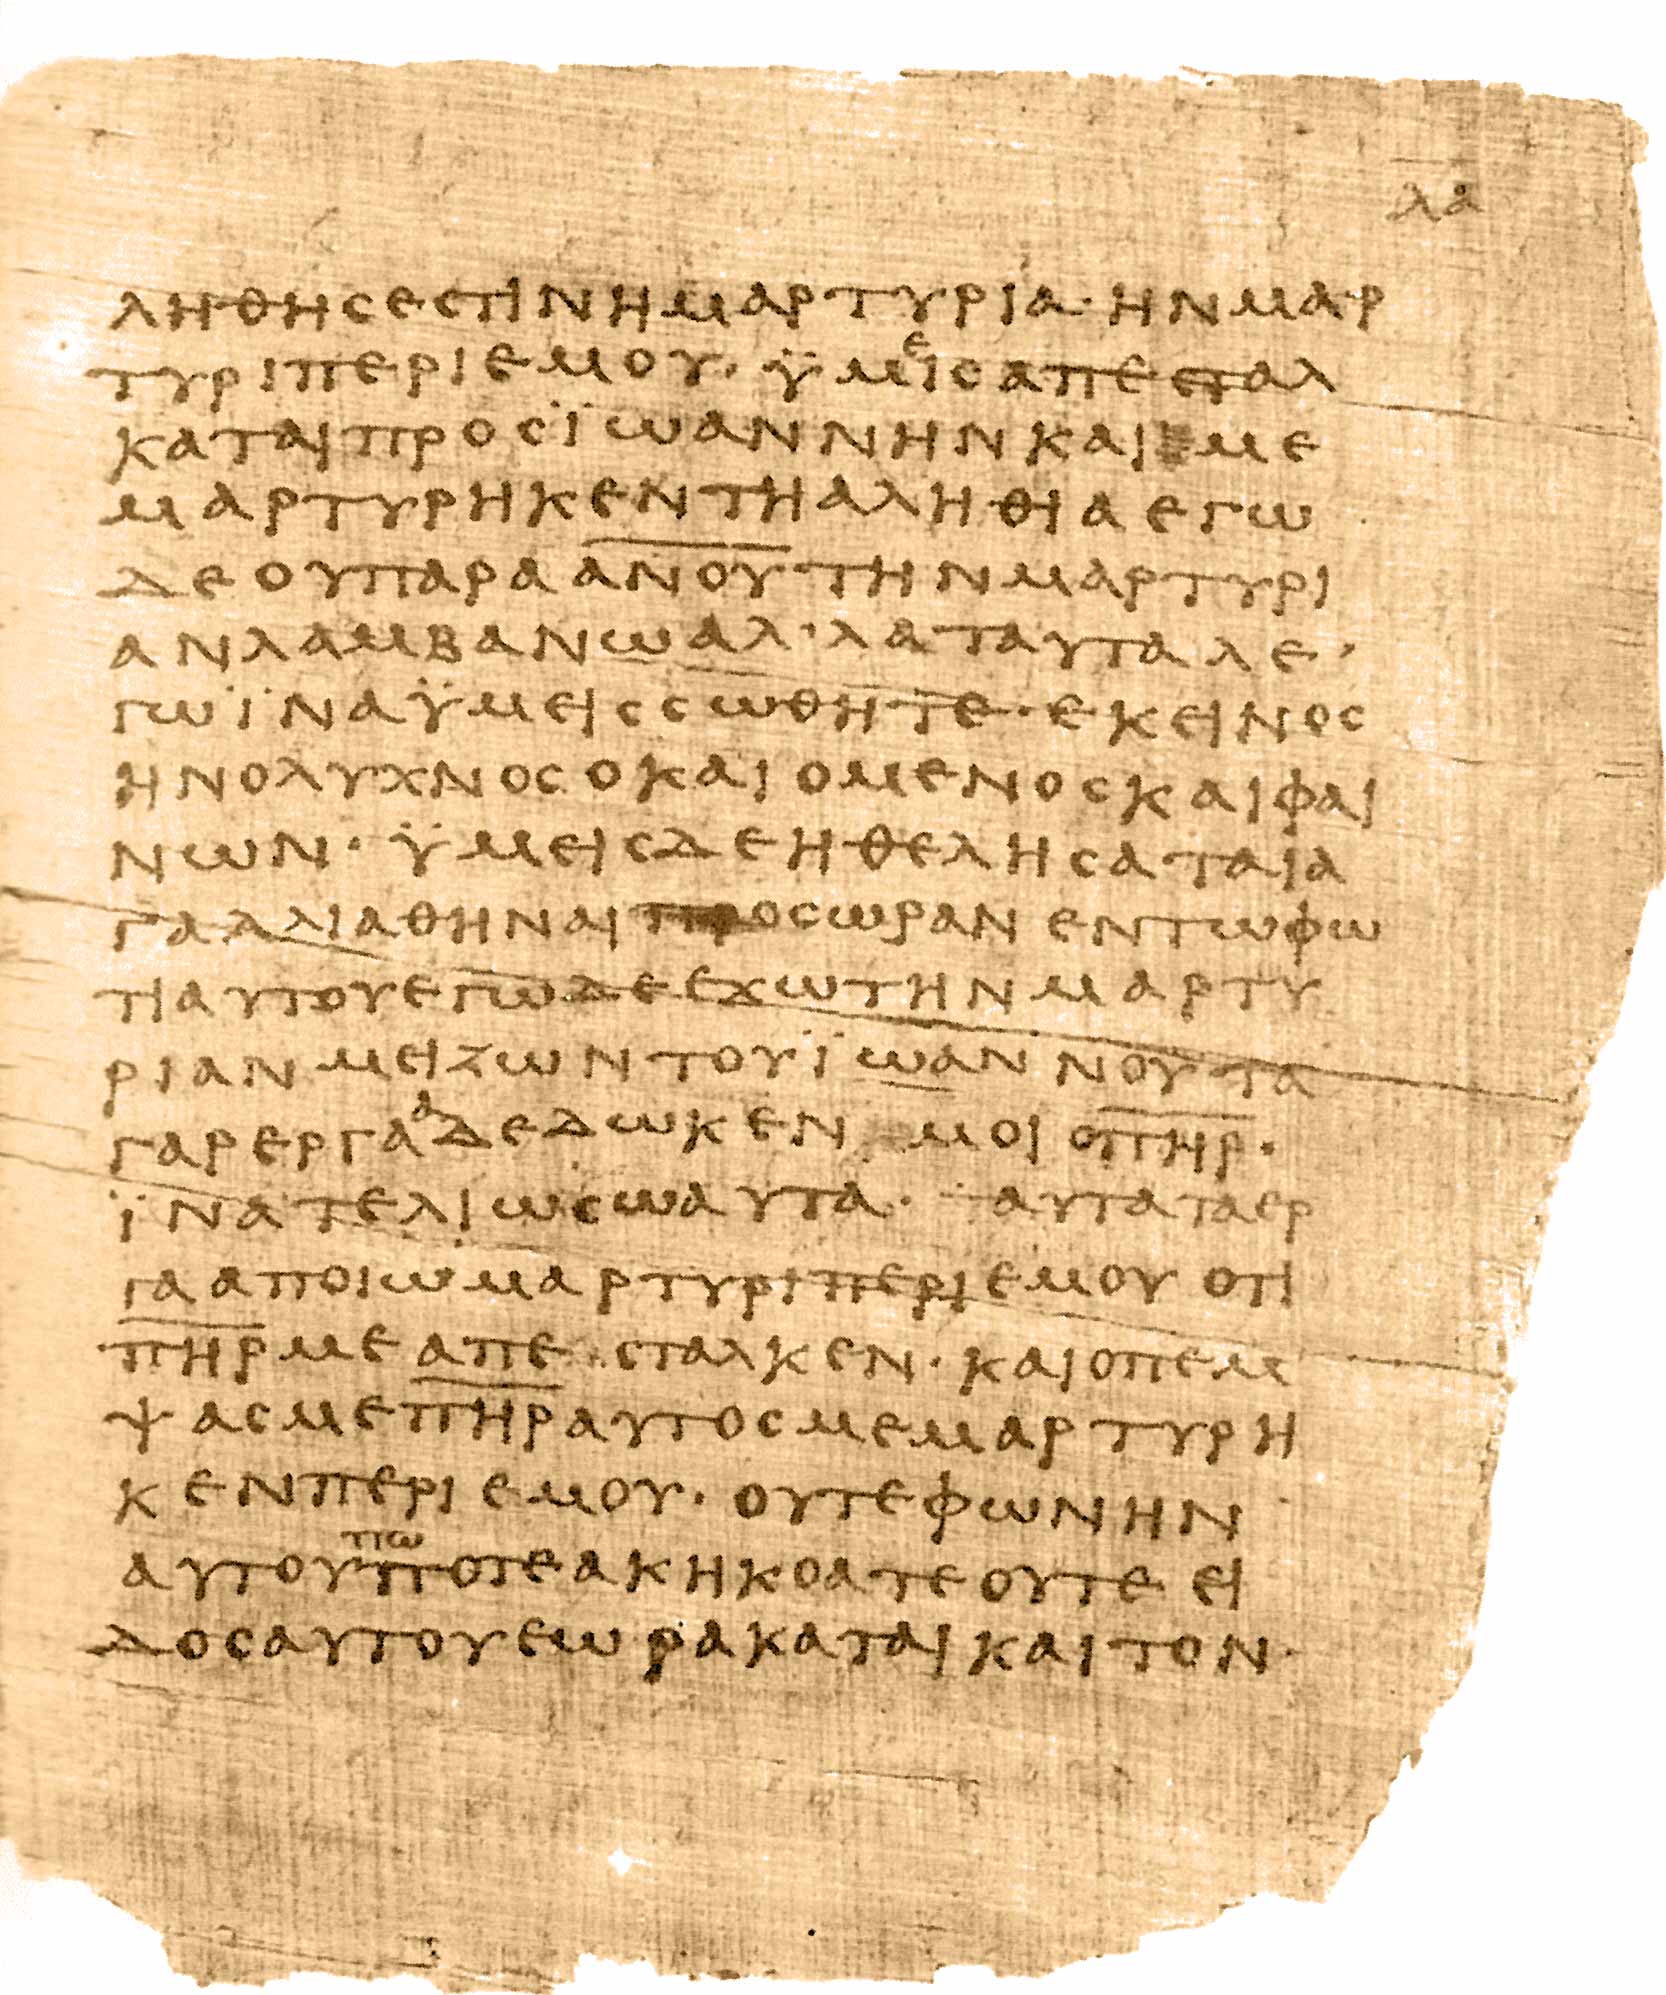 λα
ληθηςεςτινημαρτυρια· ηνμαρ
τυριπεριεμου· ϋμειςαπεςταλ
καταιπροςϊωαννηνκαιμε
μαρτυρηκεντηαληθιαεγω
δεουπαραα̅ν̅ο̅υ̅τηνμαρτυρι
ανλαμβανωαλ·λαταυταλε·
γωϊναϋμειςςωθητε·εκεινος
ηνολυχνοςοκαιομενοςκαιφαι
νων· ϋμειςδεηθεληςαταια
γαλλιαθηναιπροςωρανεντωφω
τιαυτουεγωδεεχωτηνμαρτυ
ριανμειζωντουϊωαννουτα
γαρεργααδεδωκενμοιοπ̅η̅ρ̅·
ϊνατελιωςωαυτα· αυταταερ
γααποιωμαρτυριπεριεμουοτι
π̅η̅ρ̅μεαπεςταλκεν·καιοπεμ
ψαςμεπ̅η̅ρ̅αυτοςμεμαρτυρη
κενπεριεμου·ουτεφωνην
αυτουπωποτεακηκοατεουτεει
δοςαυτουεωρακαταικαιτον·